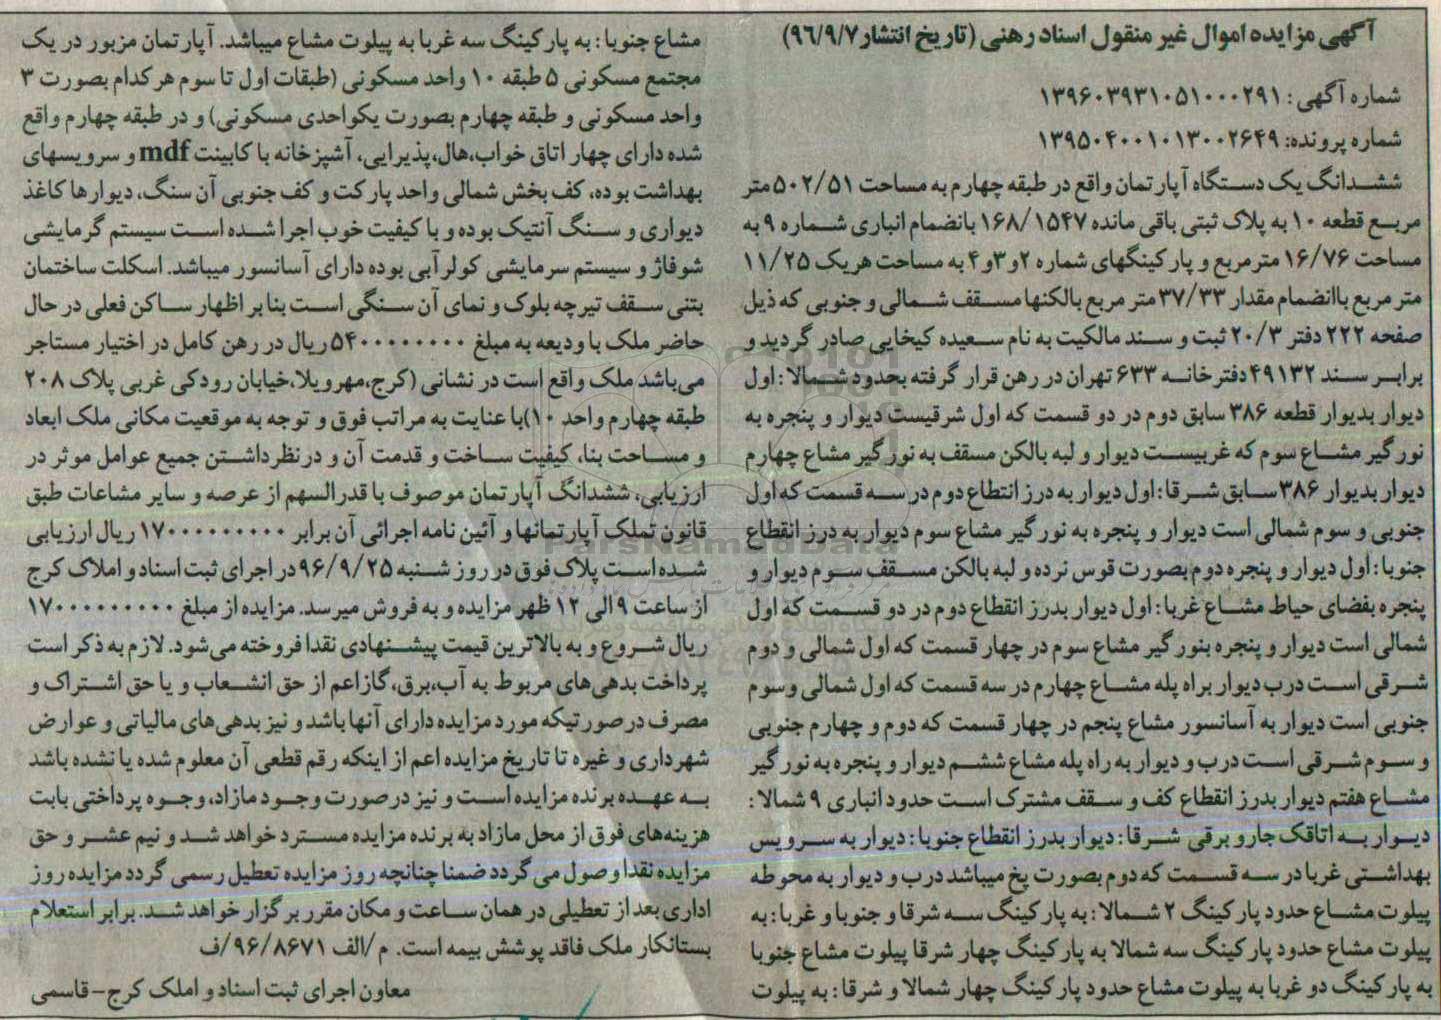 آگهی مزایده اموال غیر منقول اسناد رهنی (تاریخ انتشار ۹۶/۹/۷)
شماره آگهی : ۱۳۹۶۰۳۹۳۱۰۵۱۰۰۰۲۹۱
شماره پرونده: ۱۳۹۵۰۴۰۰۱۰۱۳۰۰۲۶۴۹
ششدانگ یک دستگاه آپارتمان واقع در طبقه چهارم به مساحت ۵۰۲/۵۱ متر
مربع قطعه ۱۰ به پلاک ثبتی باقی مانده ۱۶۸/۱۵۴۷ بانضمام انباری شماره ۹ به
مساحت ۱۶/۷۶ مترمربع و پارکینگهای شماره ۲و۳و۴ به مساحت هریک ۱۱/۲۵
متر مربع باانضمام مقدار ۳۷/۳۳ متر مربع بالکنها مسقف شمالی و جنوبی که ذیل
صفحه ۲۲۲ دفتر ۲۰/۳ ثبت و سند مالکیت به نام سعیده کیخایی صادر گردید و
برابر سند ۴۹۱۳۲ دفترخانه ۶۳۳ تهران در رهن قرار گرفته بحدود شمالا : اول
دیوار بدیوار قطعه ۳۸۶ سابق دوم در دو قسمت که اول شرقیست دیوار و پنجره به
نورگیر مشاع سوم که غربیست دیوار و لبه بالکن مسقف به نورگیر مشاع چهارم
دیوار بدیوار ۳۸۶ سابق شرقا : اول دیوار به درز انتطاع دوم در سه قسمت که اول
جنوبی و سوم شمالی است دیوار و پنجره به نورگیر مشاع سوم دیوار به درز انقطاع
جنوبا : اول دیوار و پنجره دوم بصورت قوس نرده و لبه بالکن مسقف سوم دیوار و
پنجره بفضای حیاط مشاع غربا : اول دیوار بدرز انقطاع دوم در دو قسمت که اول
شمالی است دیوار و پنجره بنورگیر مشاع سوم در چهار قسمت که اول شمالی و دوم
شرقی است درب دیوار براه پله مشاع چهارم در سه قسمت که اول شمالی وسوم
جنوبی است دیوار به آسانسور مشاع پنجم در چهار قسمت که دوم و چهارم جنوبی
و سوم شرقی است درب و دیوار به راه پله مشاع ششم دیوار و پنجره به نورگیر
مشاع هفتم دیوار بدرز انقطاع کف و سقف مشترک است حدود انباری ۹ شمالا :
دیوار به اتاقک جارو برقی شرقا : دیوار بدرز انقطاع جنوبا : دیوار به سرویس
بهداشتی غربا در سه قسمت که دوم بصورت پخ میباشد درب و دیوار به محوطه
پیلوت مشاع حدود پارکینگ ۲ شمالا : به پارکینگ سه شرقا و جنوبا و غربا : به
پیلوت مشاع حدود پارکینگ سه شمالا به پارکینگ چهار شرقا پیلوت مشاع جنوبا
به پارکینگ دو غربا به پیلوت مشاع حدود پارکینگ چهار شمالا و شرقا : به پیلوت
مشاع جنوبا : به پارکینگ سه غربا به پیلوت مشاع میباشد. آپارتمان مزبور در یک
مجتمع مسکونی ۵ طبقه ۱۰ واحد مسکونی (طبقات اول تا سوم هرکدام بصورت ۳
واحد مسکونی و طبقه چهارم بصورت یکواحدی مسکونی) و در طبقه چهارم واقع
شده دارای چهار اتاق خواب،هال،پذیرایی، آشپزخانه با کابینت mdf و سرویسهای
بهداشت بوده، کف بخش شمالی واحد پارکت و کف جنوبی آن سنگ، دیوارها کاغذ
دیواری و سنگ آنتیک بوده و با کیفیت خوب اجرا شده است سیستم گرمایشی
شوفاژ و سیستم سرمایشی کولر آبی بوده دارای آسانسور میباشد. اسکلت ساختمان
بتنی سقف تیرچه بلوک و نمای آن سنگی است بنابر اظهار ساکن فعلی در حال
حاضر ملک با ودیعه به مبلغ ۵۴۰۰۰۰۰۰۰۰ ریال در رهن کامل در اختیار مستاجر
می‌باشد ملک واقع است در نشانی (کرج،مهرویلا،خیابان رودکی غربی پلاک ۲۰۸
طبقه چهارم واحد ۱۰)با عنایت به مراتب فوق و توجه به موقعیت مکانی ملک ابعاد
و مساحت بنا، کیفیت ساخت و قدمت آن و درنظرداشتن جمیع عوامل موثر در
ارزیابی، ششدانگ آپارتمان موصوف با قدرالسهم از عرصه و سایر مشاعات طبق
قانون تملک آپارتمانها و آئین نامه اجرائی آن برابر ۱۷۰۰۰۰۰۰۰۰۰ ریال ارزیابی
شده است پلاک فوق در روز شنبه ۹۶/۹/۲۵ در اجرای ثبت اسناد و املاک کرج
از ساعت ۹ الی ۱۲ ظهر مزایده و به فروش میرسد. مزایده از مبلغ ۱۷۰۰۰۰۰۰۰۰۰
ریال شروع و به بالاترین قیمت پیشنهادی نقدا فروخته می‌شود. لازم به ذکر است
پرداخت بدهی‌های مربوط به آب،برق،گاز اعم از حق انشعاب و یا حق اشتراک و
مصرف درصورتیکه مورد مزایده دارای آنها باشد و نیز بدهی‌های مالیاتی و عوارض
شهرداری و غیره تا تاریخ مزایده اعم از اینکه رقم قطعی آن معلوم شده یا نشده باشد
به عهده برنده مزایده است و نیز درصورت وجود مازاد، وجوه پرداختی بابت
هزینه‌های فوق از محل مازاد به برنده مزایده مسترد خواهد شد و نیم عشر و حق
مزایده نقدا وصول می گردد ضمنا چنانچه روز مزایده تعطیل رسمی گردد مزایده روز
اداری بعد از تعطیلی در همان ساعت و مکان مقرر برگزار خواهد شد. برابر استعلام
بستانکار ملک فاقد پوشش بیمه است. م/الف ۹۶/۸۶۷۱/ف
معاون اجرای ثبت اسناد و املک کرج - قاسمی
ParsNamadData